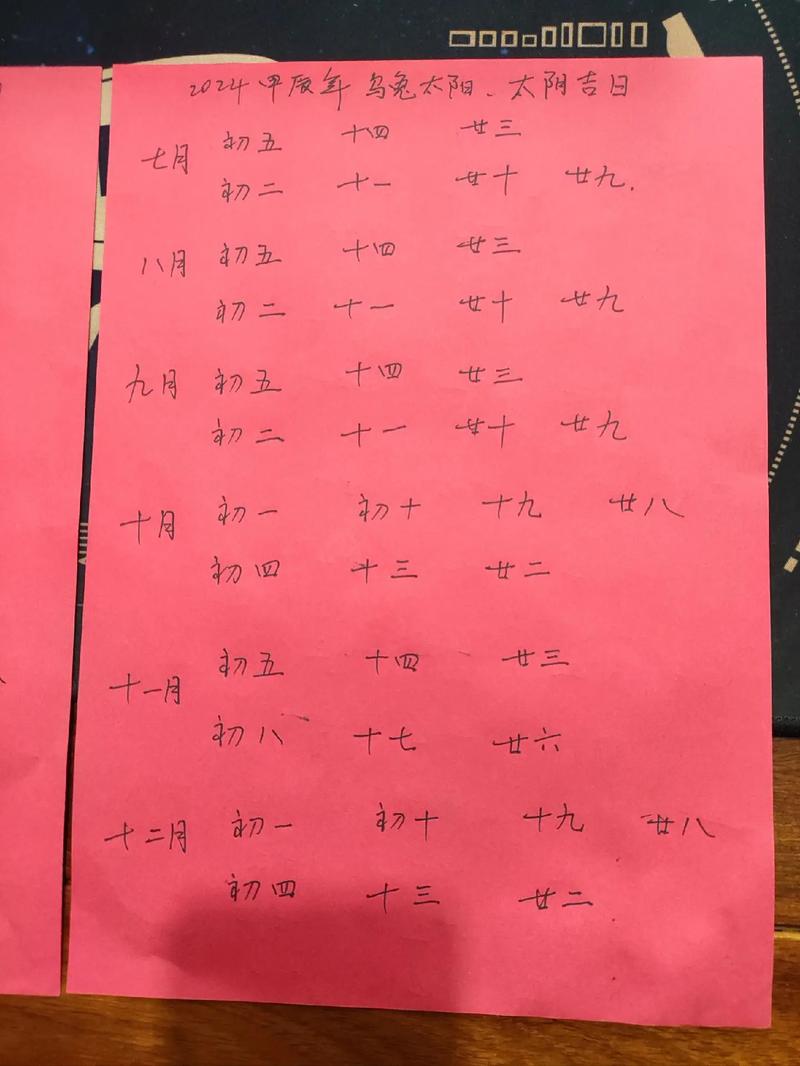 2024 甲辰年 乌兔太阳、太阴吉日
七月 初五 十四 廿三
初二 十一 廿十 廿九.
八月 初五 十四 廿三
初二 十一 廿十 廿九
九月 初五 十四 廿三
初二 十一 廿十 廿九
十月 初一 初十 十九 廿八
初四 十三 廿二
十一月 初五 十四 廿三
初八 十七 廿六
十二月 初一 初十 十九 廿八
初四 十三 廿二